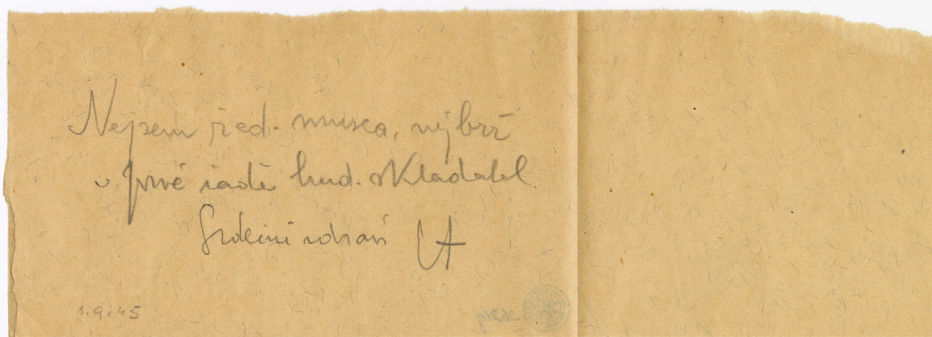 Nejsem řed. musea, nýbrž
v prvé řadě hud. skladatel.
Srdečně zdraví
1.9.45